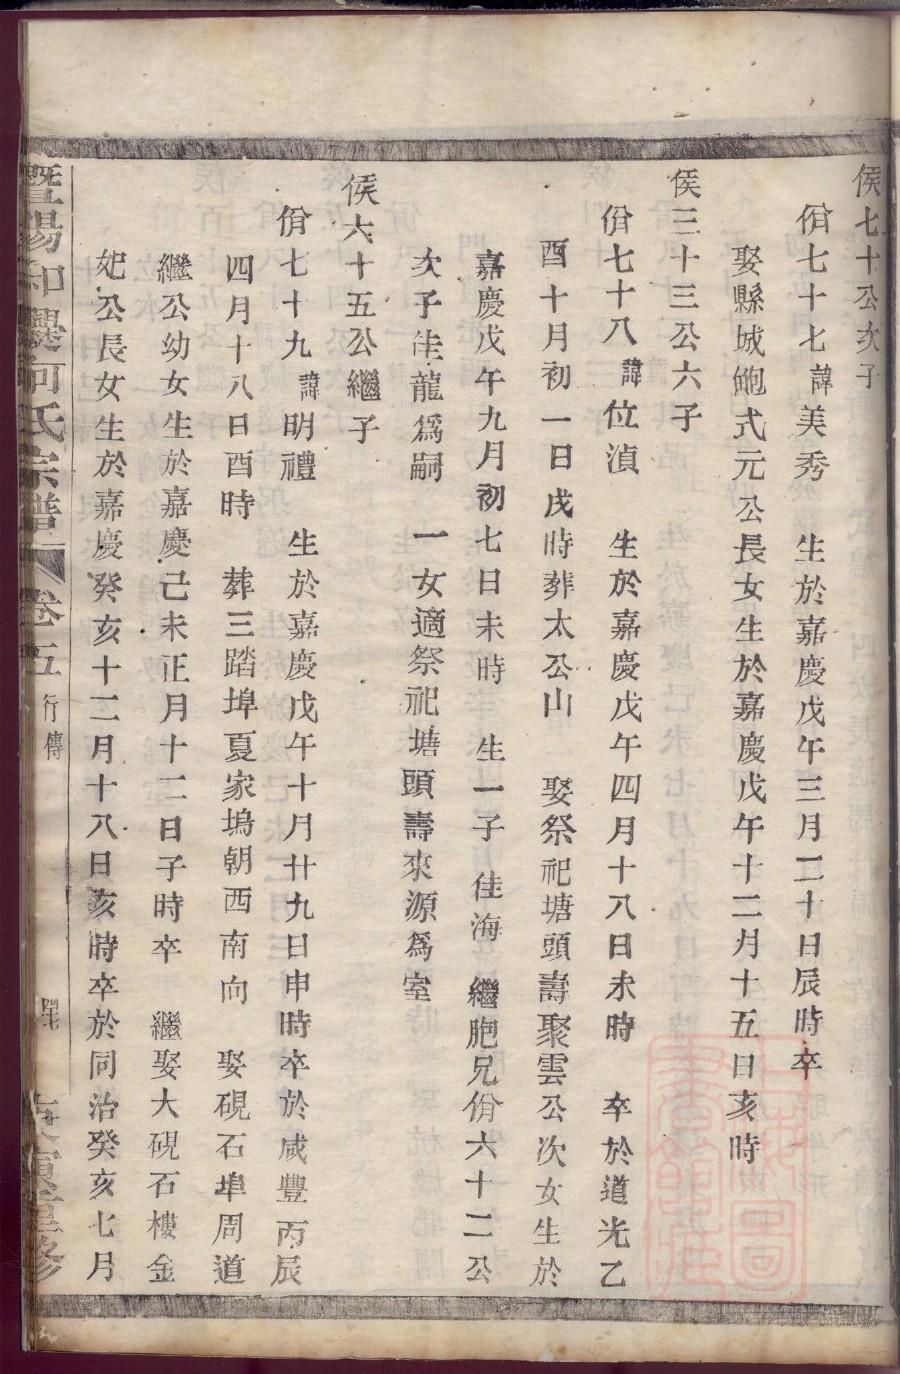 侯七十公次子
佾七十七諱美秀　生於嘉慶戊午三月二十日辰時卒
娶縣城鮑式元公長女生於嘉慶戊午十二月十五日亥時
侯三十三公六子
佾七十八諱位滇　生於嘉慶戊午四月十八日未時　卒於道光乙
酉十月初一日戌時葬太公山　娶祭祀塘頭壽聚雲公次女生於
嘉慶戊午九月初七日未時　生一子　佳海　繼胞兄佾六十二公
次子佳龍爲嗣　一女適祭祀塘頭壽來源爲室
侯六十五公繼子
佾七十九諱明禮　生於嘉慶戊午十月廿九日申時卒於咸豐丙辰
四月十八日酉時　葬三踏埠夏家塢朝西南向　娶硯石埠周道
繼公幼女生於嘉慶己未正月十二日子時卒　繼娶大硯石樓金
妃公長女生於嘉慶癸亥十二月十八日亥時卒於同治癸亥七月
暨陽和爨何氏宗譜　卷五　行傳